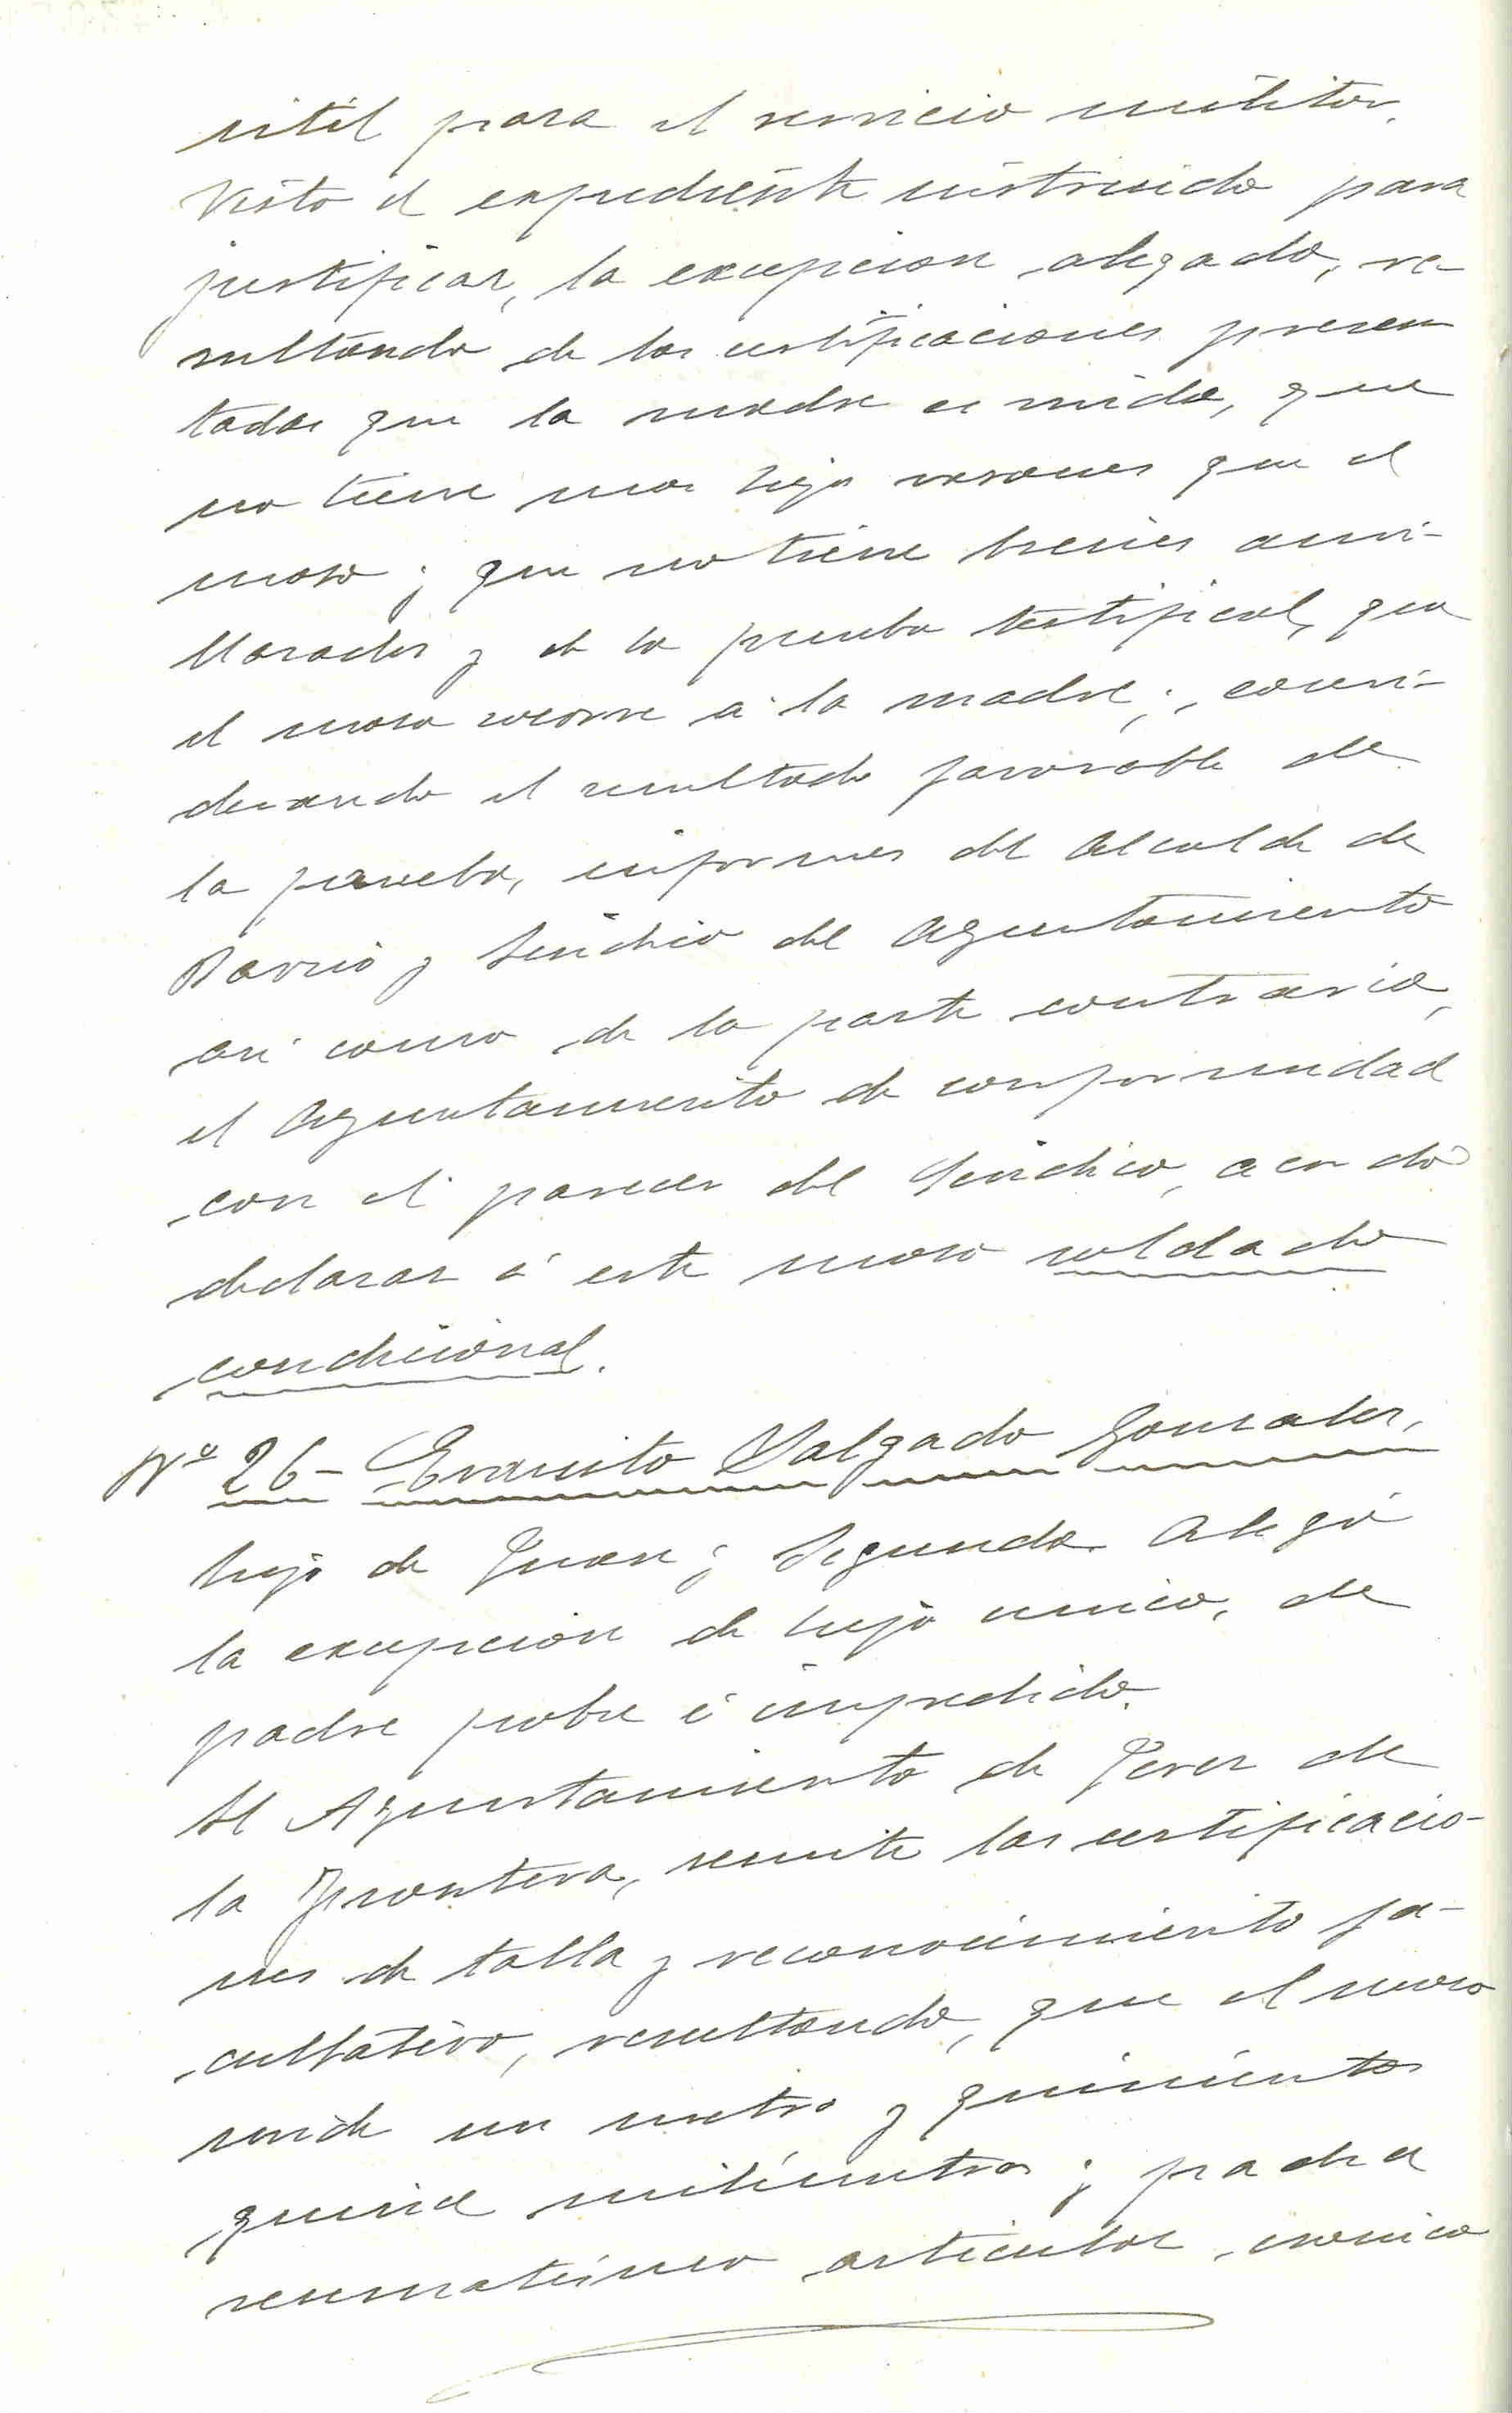 útil para el servicio militar.
Visto el expediente instruido para
justificar, la excepcion alegada, re-
sultando de las certificaciones presen
tadas que la madre es viuda, que
no tiene mas hijo varones que el
mozo; que no tiene bienes ami-
llarados y de la prueba testifical, que
el mozo socorre a la madre; consi-
derando el resultado favorable de
la prueba, informes del Alcalde de
Barrio y Sindico del Ayuntamiento
asi como de la parte contraria,
el Ayuntamiento de conformidad
con el parecer del Sindico, acordó
declarar á este mozo soldado
condicional.
Nº 26- Evaristo Salgado Gonzalez,
hijo de Juan y Segunda. Alegó
la excepcion de hijo unico, de
padre pobre é impedido.
El Ayuntamiento de Jerez de
la Frontera, remite las certificacio-
nes de talla y reconocimiento fa-
cultativo, resultando, que el mozo
mide un metro y quinientos
quince milímetros y padece
reumatismo articular cronico